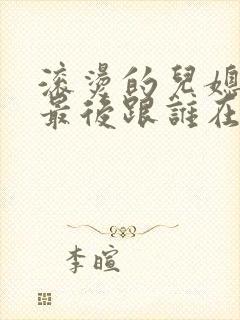 滚燙的兒媳
最後跟誰在
李暄